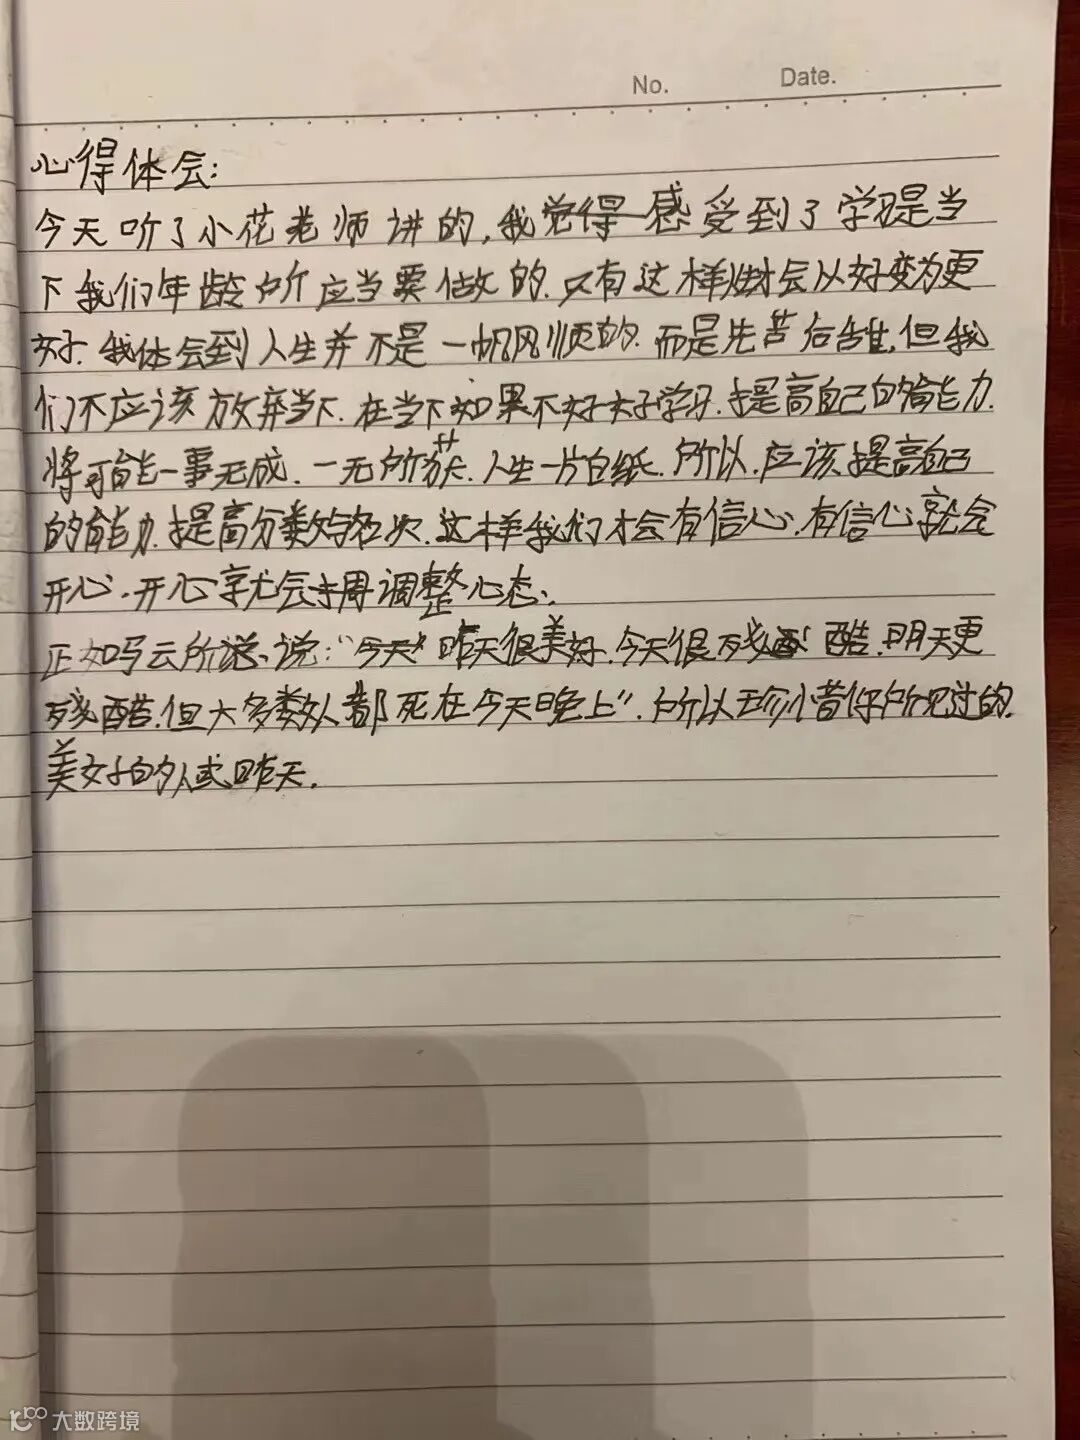 No. Date.
心得体会:
今天听了小花老师讲的,我觉得感受到了学习是当
下我们年龄所应当要做的.只有这样做才会以好变为更
好.我体会到人生并不是一帆风顺的.而是先苦后难,但我
们不应该放弃当下.在当下如果不好好学习.提高自己的能力.
将可能一事无成.一无所获.人生一片白纸.所以.应该提高自己
的能力.提高分数与名次.这样我们才会有信心.有信心就会
开心.开心就会调整心态.
正如马云所说:"今天昨天很美好.今天很残酷.明天更
残酷.但大多数人都死在今天晚上".所以珍惜你所见过的.
美好的人或昨天.
大数跨境